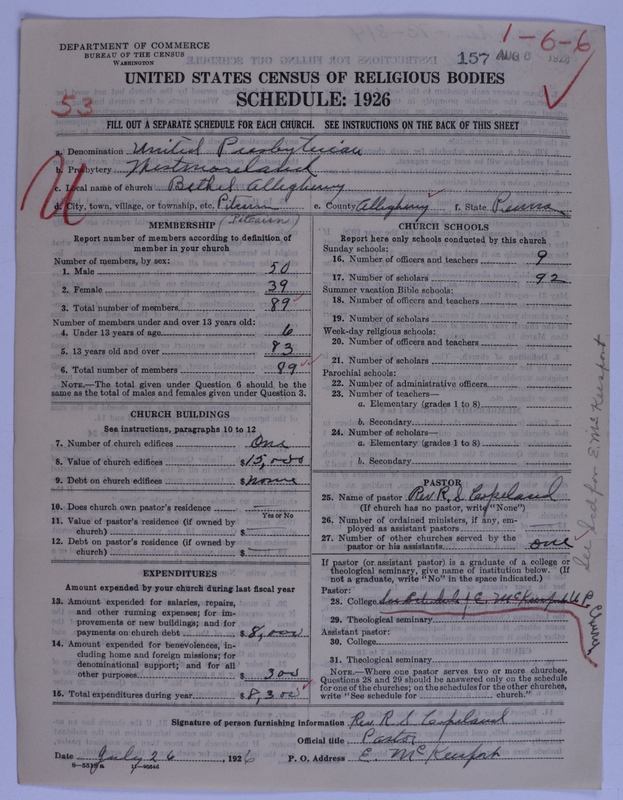 1-6-6
DEPARTMENT OF COMMERCE
BUREAU OF THE CENSUS
WASHINGTON
157 AUG 6 1926
UNITED STATES CENSUS OF RELIGIOUS BODIES
SCHEDULE: 1926
53
FILL OUT A SEPARATE SCHEDULE FOR EACH CHURCH. SEE INSTRUCTIONS ON THE BACK OF THIS SHEET
a. Denomination United Presbyterian
b. Presbytery Westmoreland
c. Local name of church Bethel Allegheny
d. City, town, village, or township, etc. Pitcairn e. County Allegheny f. State Penna
(Pitcairn)
MEMBERSHIP
Report number of members according to definition of
member in your church
Number of members, by sex:
1. Male 50
2. Female 39
3. Total number of members 89
Number of members under and over 13 years old:
4. Under 13 years of age 6
5. 13 years old and over 83
6. Total number of members 89
NOTE.—The total given under Question 6 should be the
same as the total of males and females given under Question 3.
CHURCH BUILDINGS
See instructions, paragraphs 10 to 12
7. Number of church edifices One
8. Value of church edifices $15,000
9. Debt on church edifices $none
10. Does church own pastor's residence
Yes or No
11. Value of pastor's residence (if owned by
church) $
12. Debt on pastor's residence (if owned by
church) $
EXPENDITURES
Amount expended by your church during last fiscal year
13. Amount expended for salaries, repairs,
and other running expenses; for im-
provements or new buildings; and for
payments on church debt $8,000
14. Amount expended for benevolences, in-
cluding home and foreign missions; for
denominational support; and for all
other purposes $300
15. Total expenditures during year $8,300
CHURCH SCHOOLS
Report here only schools conducted by this church
Sunday schools:
16. Number of officers and teachers 9
17. Number of scholars 92
Summer vacation Bible schools:
18. Number of officers and teachers
19. Number of scholars
Week-day religious schools:
20. Number of officers and teachers
21. Number of scholars
Parochial schools:
22. Number of administrative officers
23. Number of teachers—
a. Elementary (grades 1 to 8)
b. Secondary
24. Number of scholars—
a. Elementary (grades 1 to 8)
b. Secondary
PASTOR
25. Name of pastor Rev R. S. Copeland
(If church has no pastor, write "None")
26. Number of ordained ministers, if any, em-
ployed as assistant pastors
27. Number of other churches served by the
pastor or his assistants one
If pastor (or assistant pastor) is a graduate of a college or
theological seminary, give name of institution below. (If
not a graduate, write "No" in the space indicated.)
Pastor:
28. College E. McKeesport U.P.
29. Theological seminary
Assistant pastor:
30. College
31. Theological seminary
NOTE.—Where one pastor serves two or more churches,
Questions 28 and 29 should be answered only on the schedule
for one of the churches; on the schedules for the other churches,
write "See schedule for church."
See Sed for E. McKeesport
Signature of person furnishing information Rev. R. S. Copeland
Official title Pastor
Date July 26, 1926 P. O. Address E. McKeesport
8-5518a